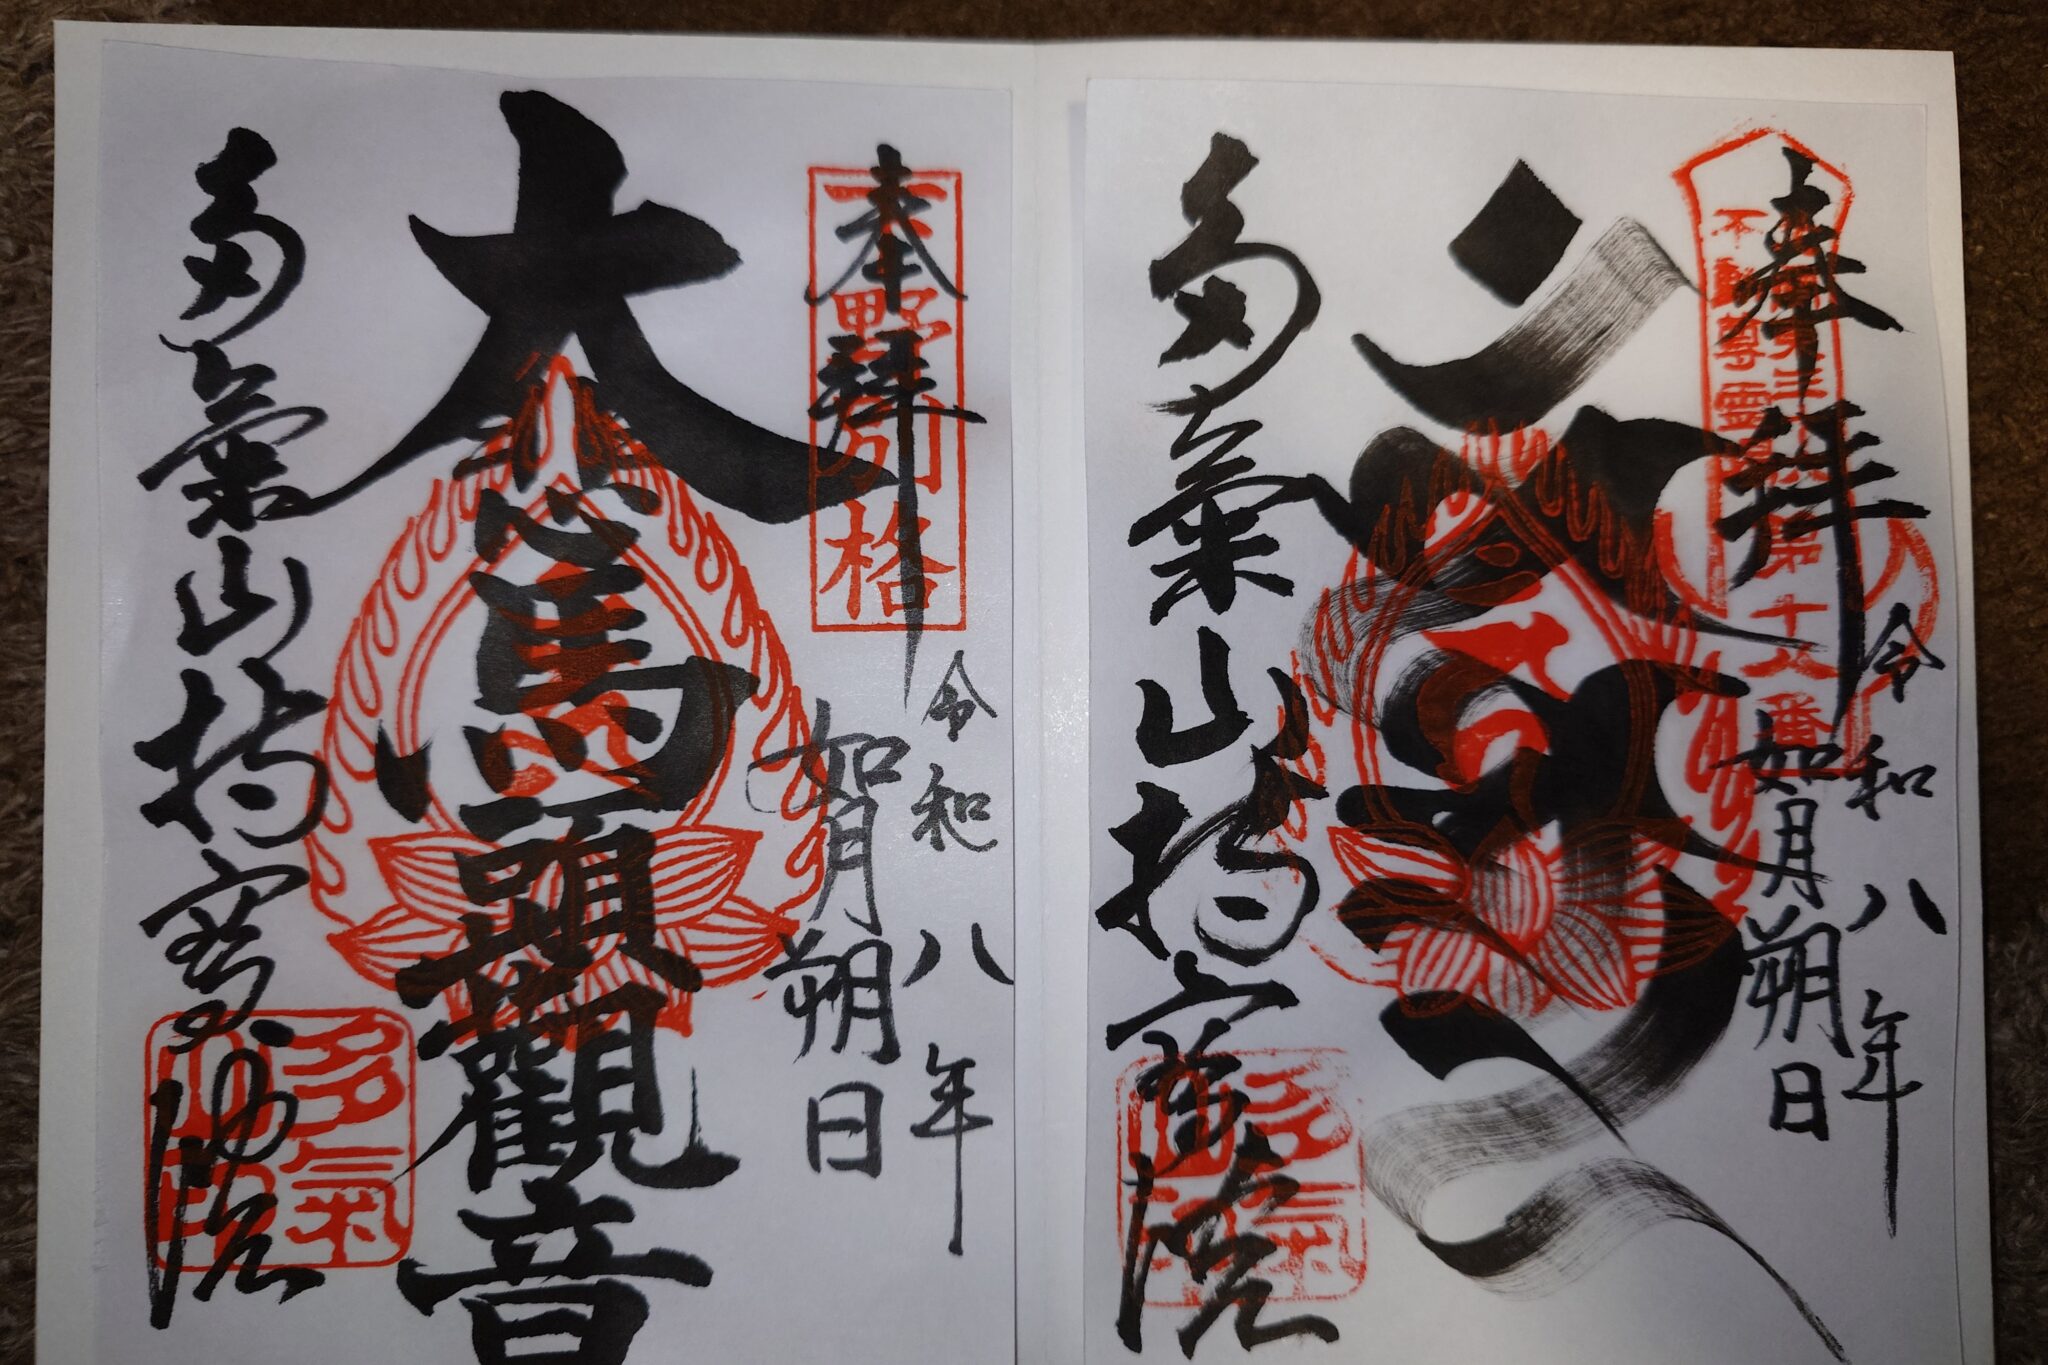 奉拝
第十八番
不動尊霊
令和八年
如月朔日
多氣山持寳院
奉拝
野別格
令和八年
如月朔日
大悲馬頭觀音
多氣山持寳院
多氣